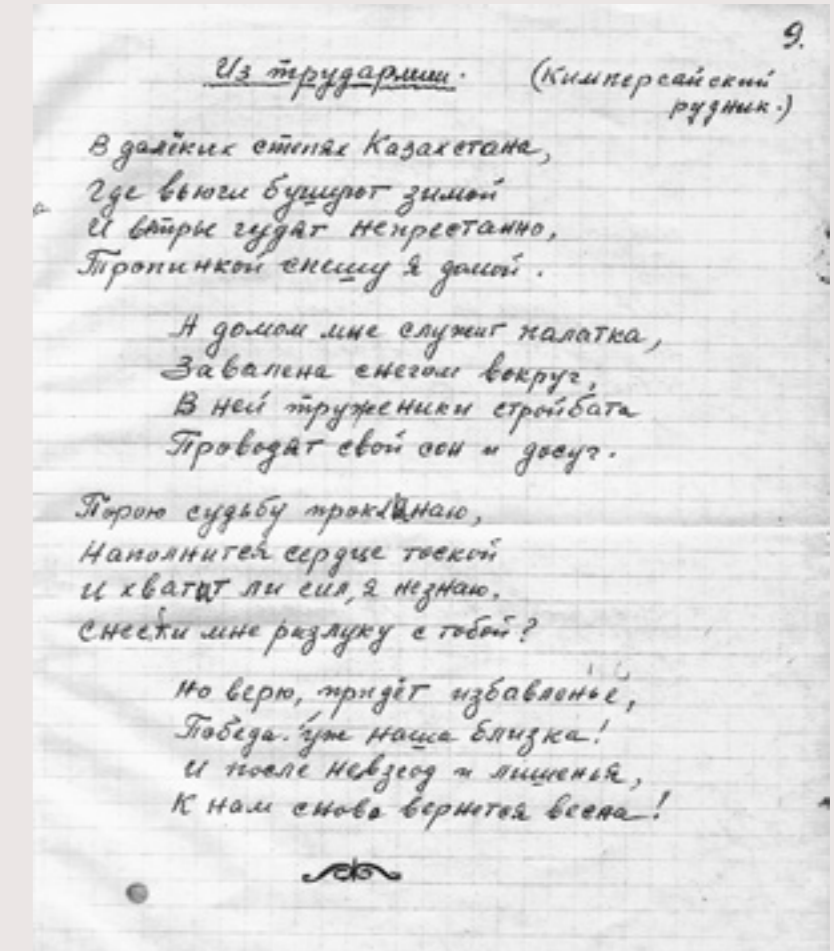 9.
Из трудармии. (Кимперсайский
рудник.)
В далёких степях Казахстана,
Где вьюги бушуют зимой
И ветры гудят непрестанно,
Тропинкой спешу я домой.
А домом мне служит палатка,
Завалена снегом вокруг,
В ней труженики стройбата
Проводят свой сон и досуг.
Порою судьбу проклинаю,
Наполнится сердце тоской
И хватит ли сил, я незнаю,
Снести мне разлуку с тобой?
Но верю, придёт избавленье,
Победа уж наша близка!
И после невзгод и лишенья,
К нам снова вернется весна!